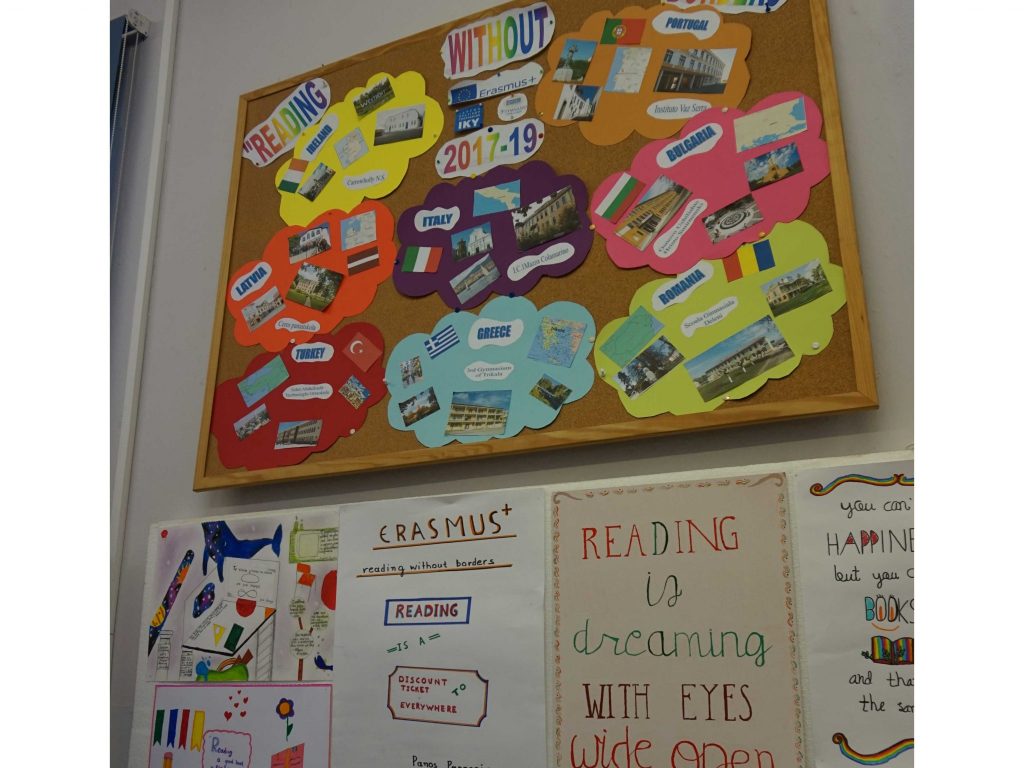 "READING
WITHOUT
Erasmus+
IKY
2017-19
IRELAND
WELCOME
Currowholly N.S.
PORTUGAL
Instituto Vaz Serra
BULGARIA
ITALY
I.C.J Mazza Colamarino
LATVIA
Cēsu pamatskola
GREECE
3rd Gymnasium
of Trikala
ROMANIA
Scoala Gimnaziala
Deleni
TURKEY
ERASMUS+
reading without borders
READING
=IS A=
DISCOUNT
TICKET TO
EVERYWHERE
READING
is
dreaming
WITH EYES
wide open
you can'
HAPPINE
but you c
BOOKS
and tha
the sam
Reading
a good book